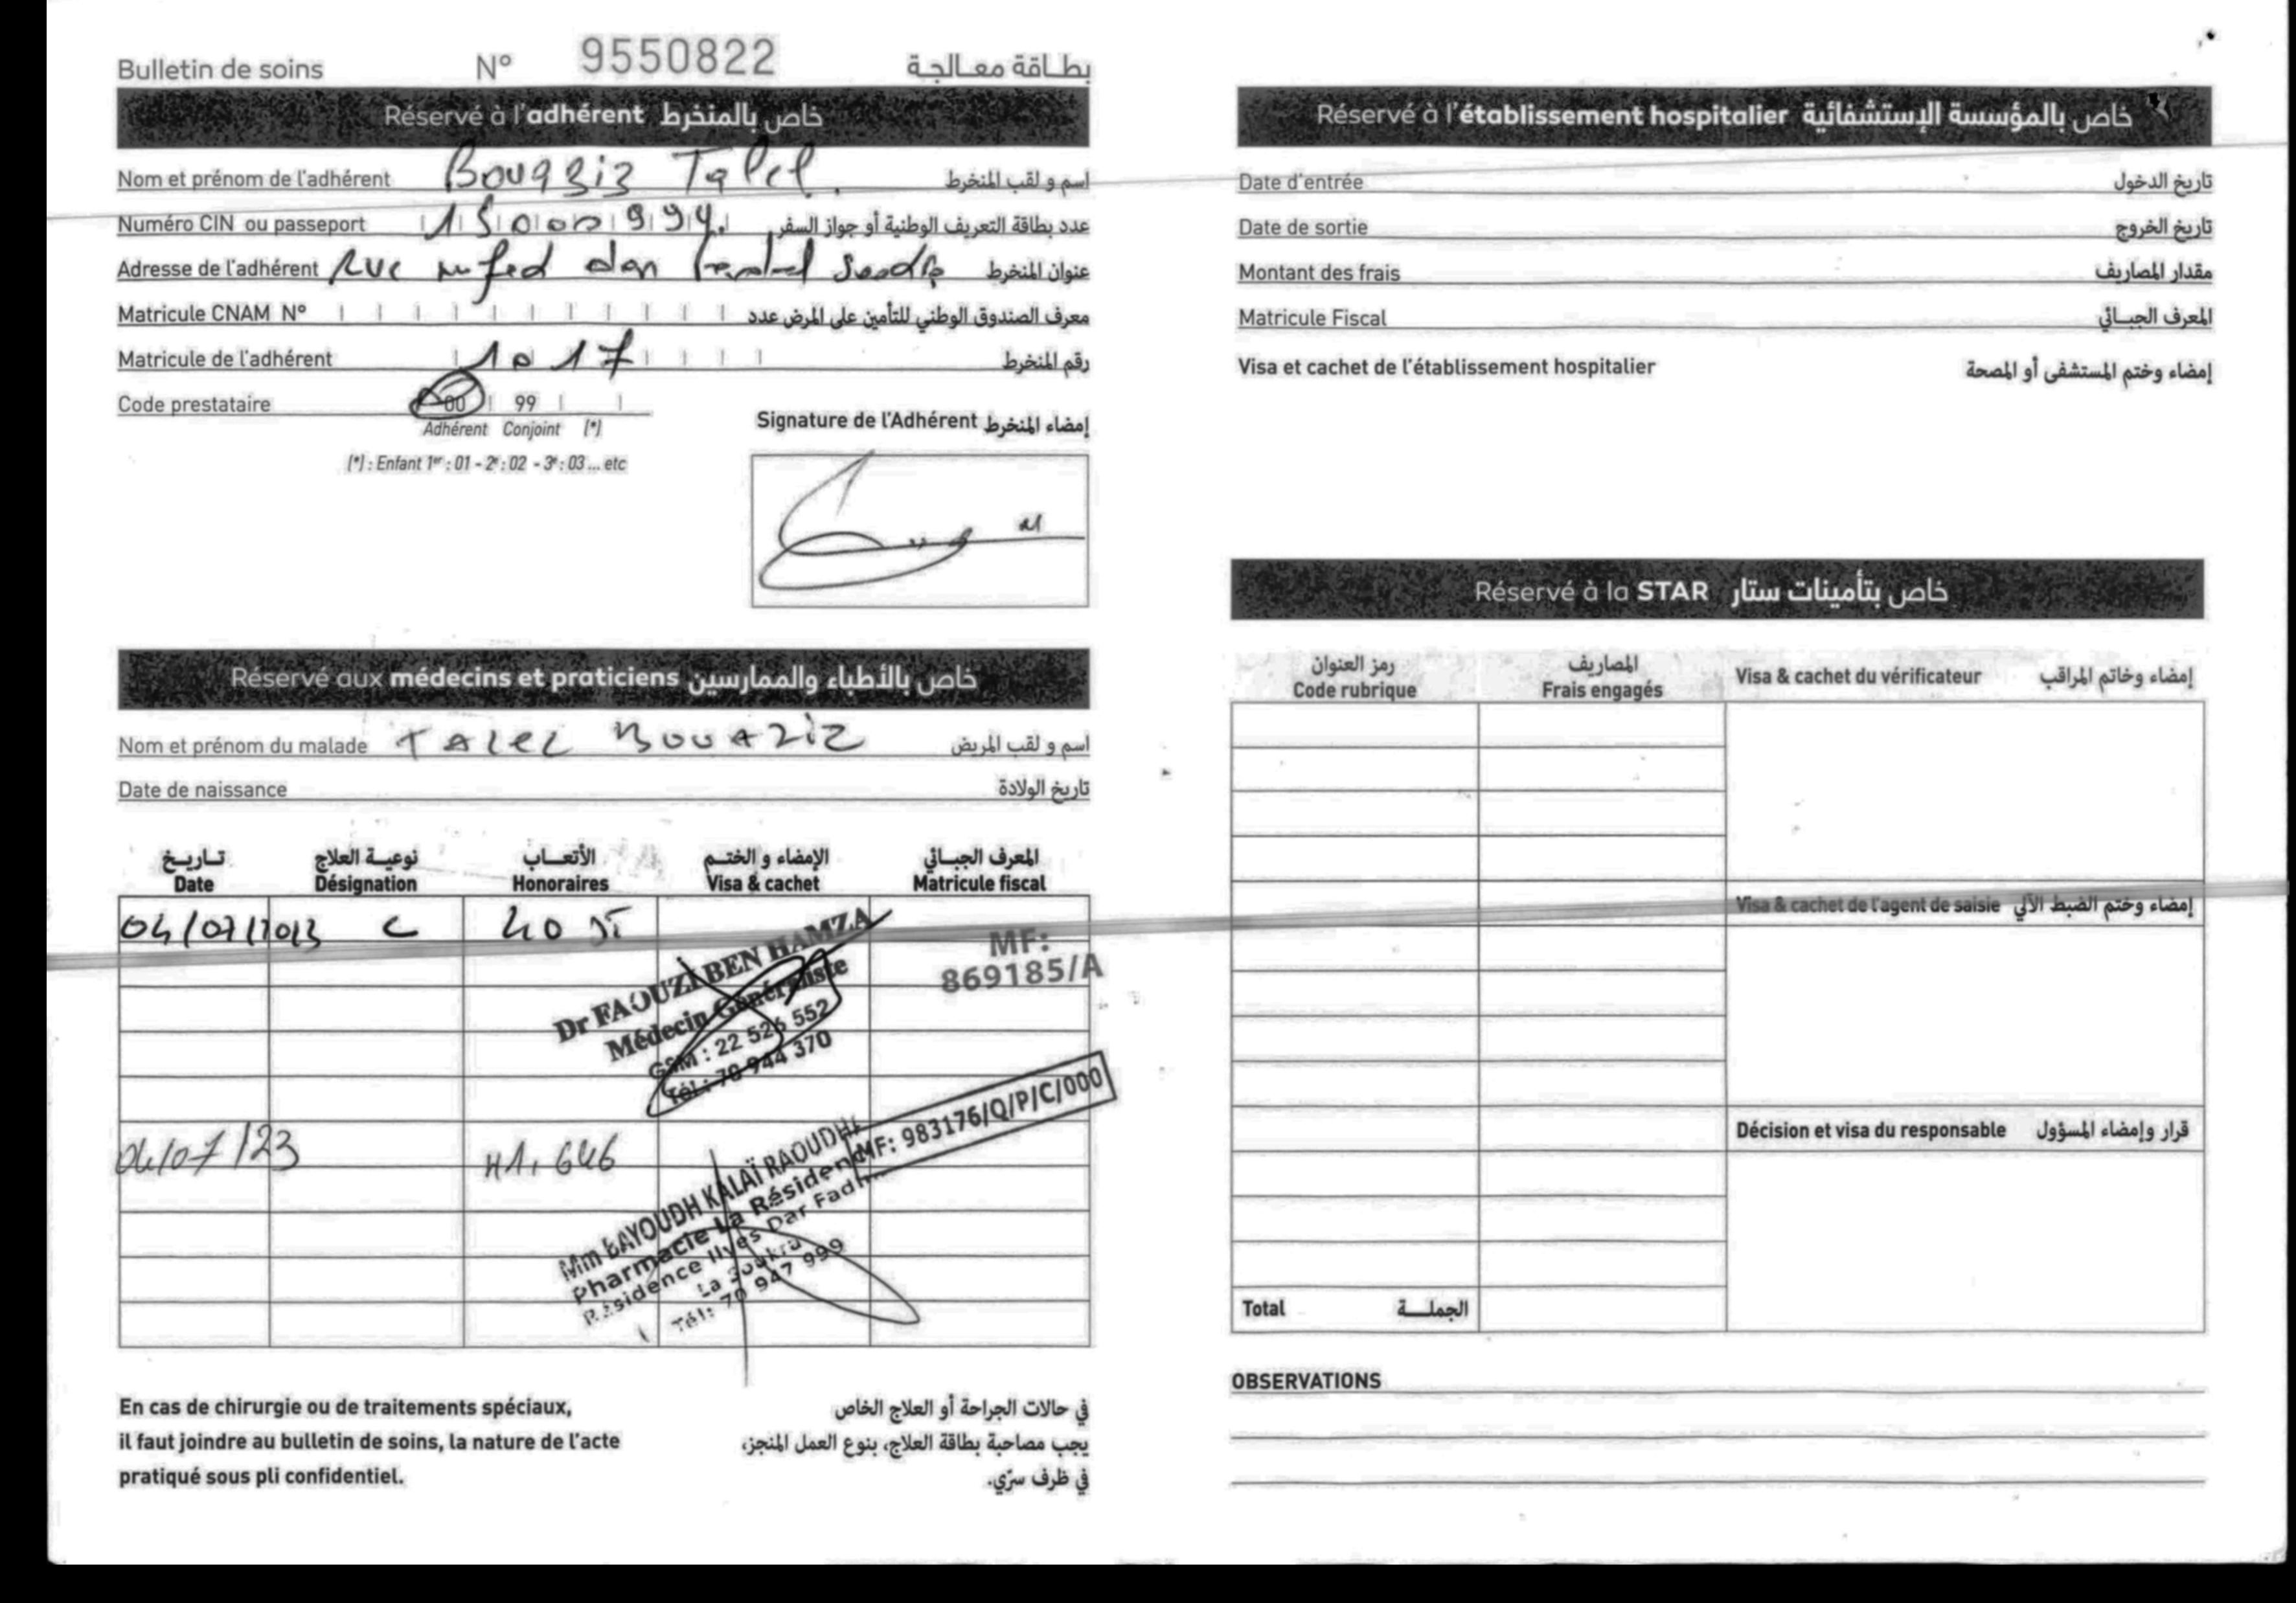 Bulletin de soins N° 9550822 بطاقة معالجة
Réservé à l'adhérent خاص بالمنخرط
Nom et prénom de l'adhérent Bouaziz Talel اسم و لقب المنخرط
Numéro CIN ou passeport 15000994 عدد بطاقة التعريف الوطنية أو جواز السفر
Adresse de l'adhérent Rue عنوان المنخرط
Matricule CNAM N° معرف الصندوق الوطني للتأمين على المرض عدد
Matricule de l'adhérent 1017 رقم المنخرط
Code prestataire 00 99
Adhérent Conjoint (*)
(*) : Enfant 1er : 01 - 2e : 02 - 3e : 03 ... etc
Signature de l'Adhérent إمضاء المنخرط
Réservé aux médecins et praticiens خاص بالأطباء والممارسين
Nom et prénom du malade TALEL BOUAZIZ اسم و لقب المريض
Date de naissance تاريخ الولادة
تاريخ نوعية العلاج الأتعاب الإمضاء و الختم المعرف الجبائي
Date Désignation Honoraires Visa & cachet Matricule fiscal
04/07/2023 C 40 DT
Dr FAOUZI BEN HAMZA
Médecin Généraliste
GSM : 22 526 552
Tél : 70 944 370
MF:
869185/A
04/07/23 41,646
Mm BAYOUDH KALAÏ RAOUDHA
Pharmacie La Résidence
Résidence Ilyes Dar Fadhal
La Soukra
Tél: 70 947 999
MF: 983176/Q/P/C/000
En cas de chirurgie ou de traitements spéciaux,
il faut joindre au bulletin de soins, la nature de l'acte
pratiqué sous pli confidentiel.
في حالات الجراحة أو العلاج الخاص
يجب مصاحبة بطاقة العلاج، بنوع العمل المنجز،
في ظرف سرّي.
Réservé à l'établissement hospitalier خاص بالمؤسسة الإستشفائية
Date d'entrée تاريخ الدخول
Date de sortie تاريخ الخروج
Montant des frais مقدار المصاريف
Matricule Fiscal المعرف الجبائي
Visa et cachet de l'établissement hospitalier إمضاء وختم المستشفى أو المصحة
Réservé à la STAR خاص بتأمينات ستار
رمز العنوان المصاريف
Code rubrique Frais engagés Visa & cachet du vérificateur إمضاء وخاتم المراقب
Visa & cachet de l'agent de saisie إمضاء وختم الضبط الآلي
Décision et visa du responsable قرار وإمضاء المسؤول
Total الجملة
OBSERVATIONS